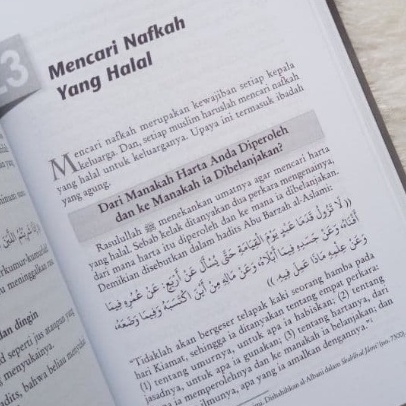 13
Mencari Nafkah
Yang Halal
Mencari nafkah merupakan kewajiban setiap kepala
keluarga. Dan, setiap muslim haruslah mencari nafkah
yang halal untuk keluarganya. Upaya ini termasuk ibadah
yang agung.
Dari Manakah Harta Anda Diperoleh
dan ke Manakah ia Dibelanjakan?
Rasulullah ﷺ menekankan umatnya agar mencari harta
yang halal. Sebab kelak ditanyakan dua perkara mengenainya,
dari mana harta itu diperoleh dan ke mana ia dibelanjakan.
Demikian disebutkan dalam hadits Abu Barzah al-Aslami:
((لَا تَزُولُ قَدَمَا عَبْدٍ يَوْمَ الْقِيَامَةِ حَتَّى يُسْأَلَ عَنْ أَرْبَعٍ: عَنْ عُمُرِهِ فِيمَا
أَفْنَاهُ، وَعَنْ جَسَدِهِ فِيمَا أَبْلَاهُ، وَعَنْ مَالِهِ مِنْ أَيْنَ اكْتَسَبَهُ وَفِيمَا وَضَعَهُ،
وَعَنْ عِلْمِهِ مَاذَا عَمِلَ فِيهِ.))
"Tidaklah akan bergeser telapak kaki seorang hamba pada
hari Kiamat, sehingga ia ditanyakan tentang empat perkara:
(1) tentang umurnya, untuk apa ia habiskan; (2) tentang
jasadnya, untuk apa ia gunakan; (3) tentang hartanya, dari
ia memperolehnya dan ke manakah ia belanjakan; dan
ilmunya, apa yang ia amalkan dengannya."
Dishahihkan al-Albani dalam
dan dingin
d seperti jus ataupun
menyukainya.
adits, bahwa beliau